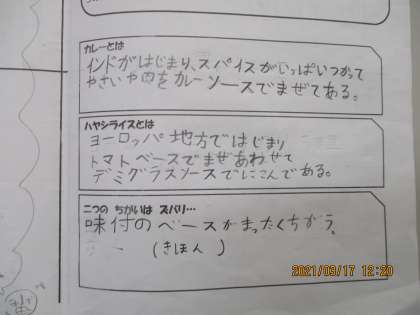 カレーとは
インドがはじまり、スパイスがいっぱいつかって
やさいや肉をカレーソースでまぜてある。
ハヤシライスとは
ヨーロッパ地方ではじまり
トマトベースでまぜあわせて
デミグラスソースでにこんである。
二つの ちがいは ズバリ…
味付のベースがまったくちがう。
(きほん)
2021/09/17 12:20